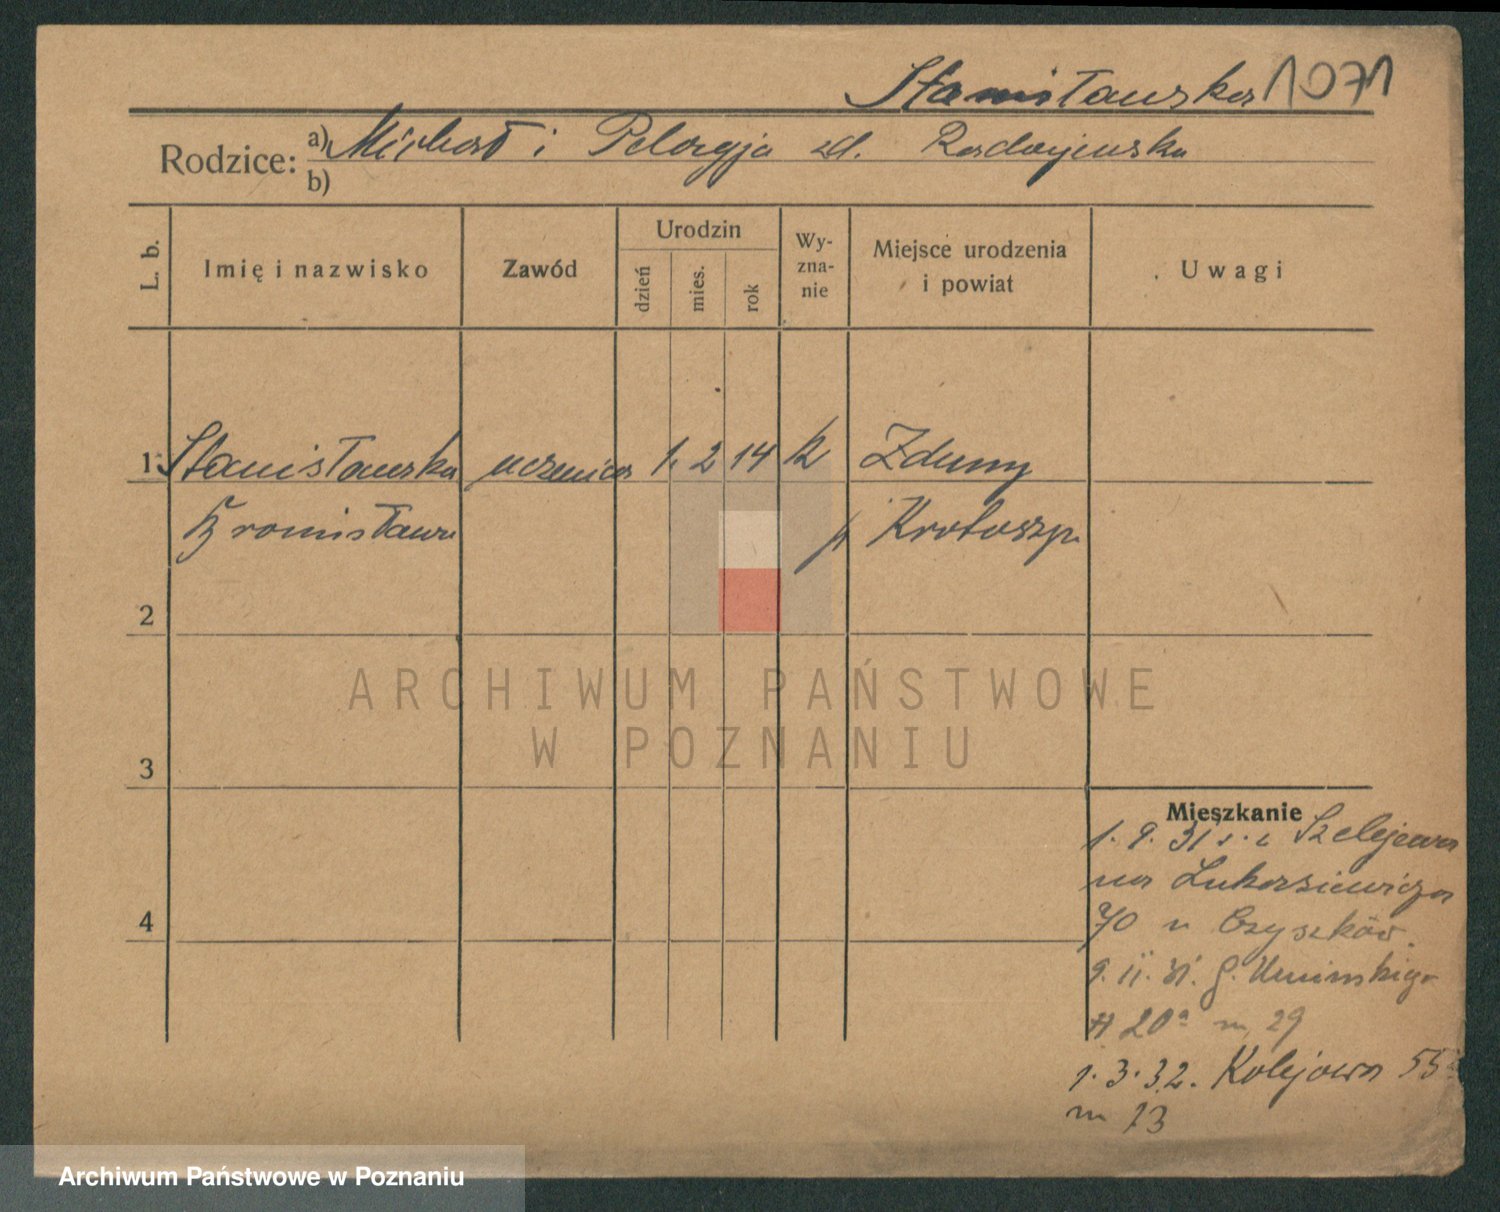 Stanisławska 1071
Rodzice: a) Michał i Pelagja zd. Radojewska
b)
L. b. Imię i nazwisko Zawód Urodzin dzień mies. rok Wy-zna-nie Miejsce urodzenia i powiat Uwagi
1 Stanisławska uczenica 1. 2 14 k Zduny
Bronisława p Krotoszyn
2
ARCHIWUM PAŃSTWOWE
W POZNANIU
3
4
Mieszkanie
1. 9. 31 Szelejewa
na Łukasiewicza
70 u Czyszków.
9. 11. 31. G. Umińskiego
20a m 29
1. 3. 32. Kolejowa 55
m 13
Archiwum Państwowe w Poznaniu